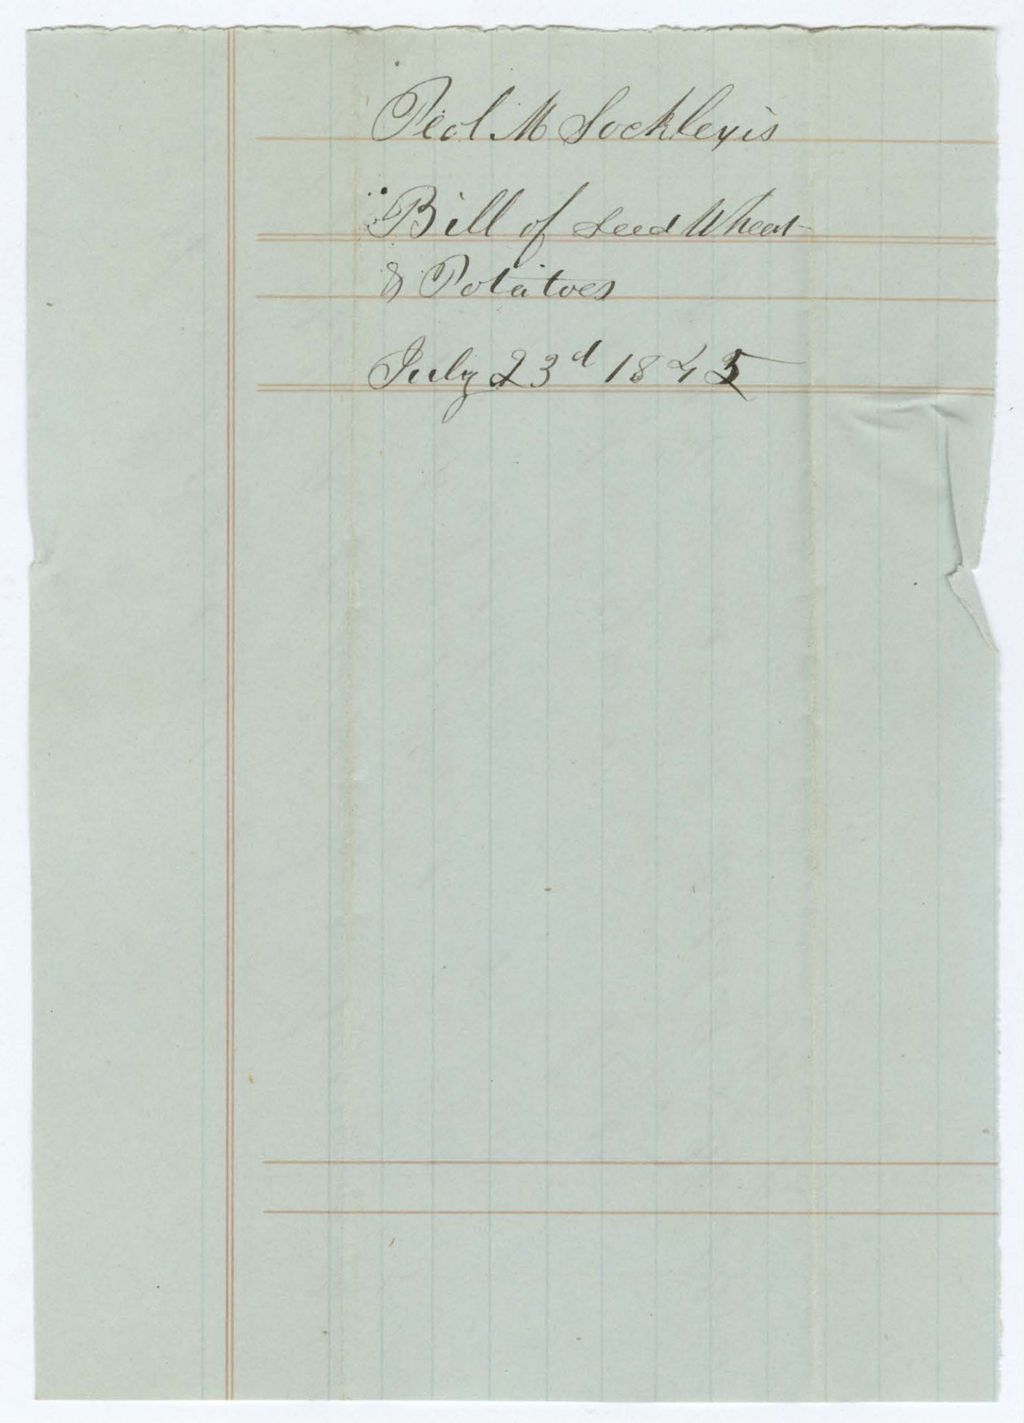 Peol. M Sockleyis
Bill of Seed Wheat
& Potatoes
July 23d 1845